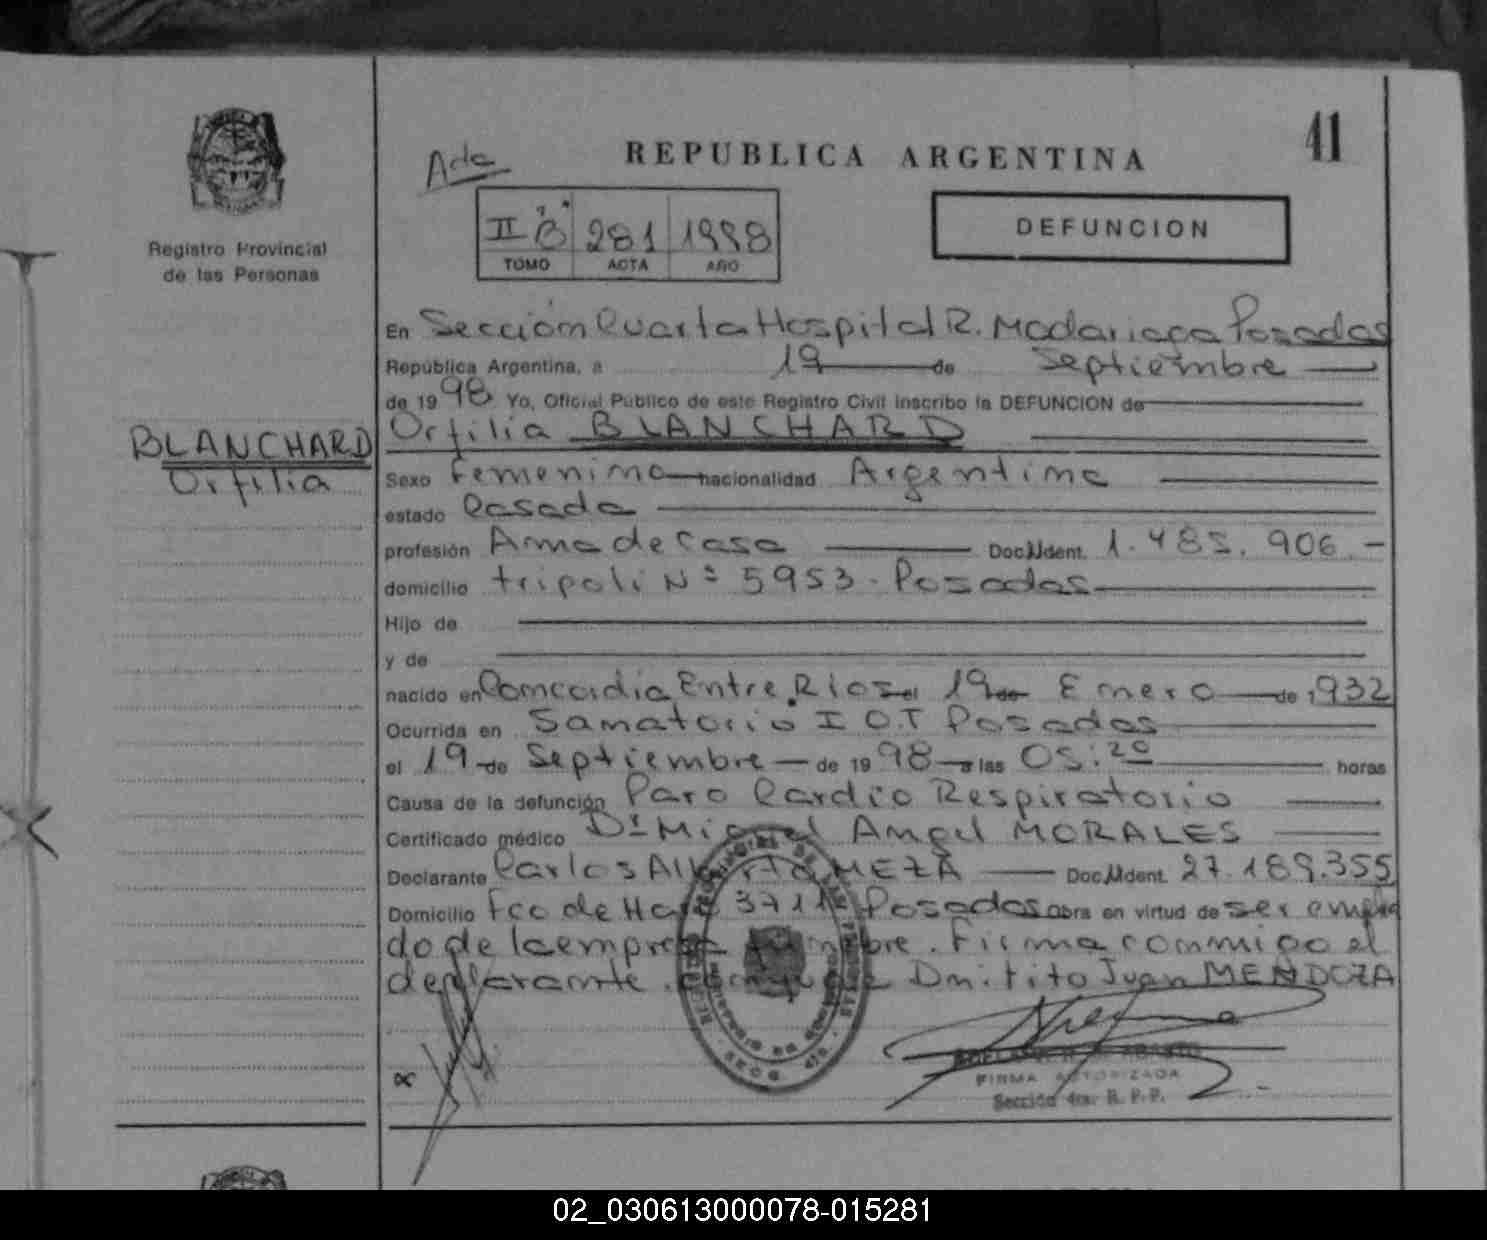 41
REPUBLICA ARGENTINA
Acta
II "B" 281 1998
TOMO ACTA AÑO
DEFUNCION
Registro Provincial
de las Personas
BLANCHARD
Orfilia
En Sección Cuarta Hospital R. Madariaga Posadas
República Argentina, a 19 de Septiembre
de 1998 Yo, Oficial Público de este Registro Civil inscribo la DEFUNCION de
Orfilia BLANCHARD
Sexo Femenino nacionalidad Argentina
estado Casada
profesión Ama de Casa Doc. Ident. 1.485.906.-
domicilio tripoli Nº 5953. Posadas
Hijo de
y de
nacido en Concordia Entre Rios el 19 de Enero de 1932
Ocurrida en Sanatorio I O.T Posadas
el 19 de Septiembre de 1998 a las 05:20 horas
Causa de la defunción Paro Cardio Respiratorio
Certificado médico Dr Miguel Angel MORALES
Declarante Carlos Alberto MEZA Doc. Ident. 27.189.355
Domicilio Fco de Haro 3711 Posadas obra en virtud de ser emplea
do de la empresa funebre. Firma conmigo el
declarante. Conyuge Dmitito Juan MENDOZA
FIRMA AUTORIZADA
Sección 4ta. R. P. P.
02_030613000078-015281